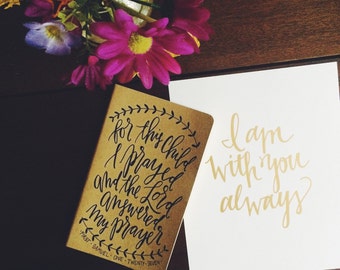 for this child
I prayed
and the Lord
answered
my prayer
FIRST SAMUEL ONE TWENTY-SEVEN
I am
with you
always